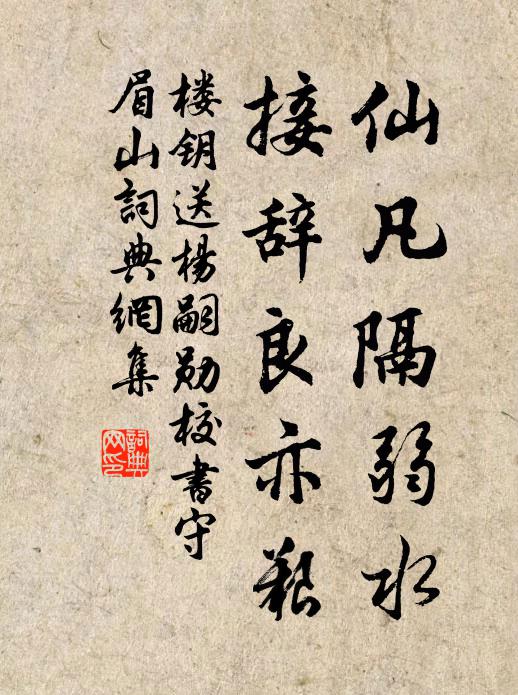 仙凡隔弱水
接辞良亦艰
楼钥送杨嗣勋校书守
眉山詞典網集
詞典
网印